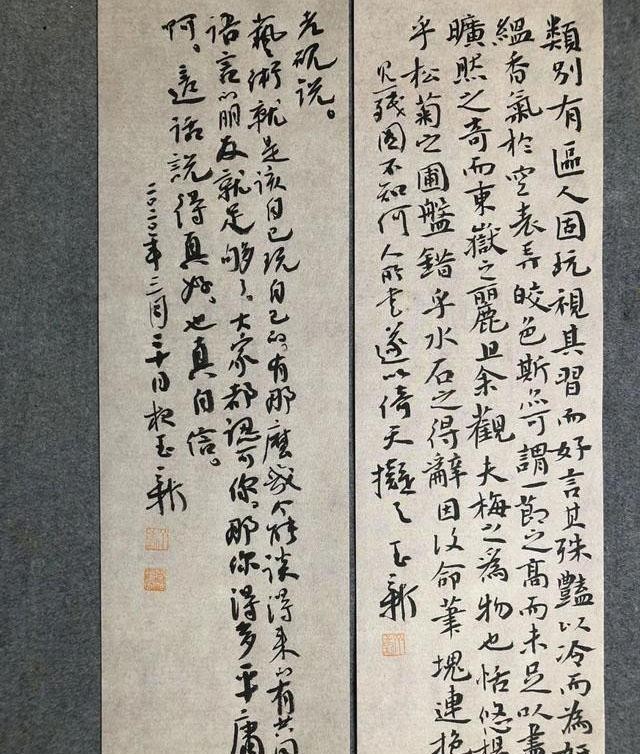 類別有區人固玩視其習而好言其殊豔以冷而為
縕香氣於空表弄皎色斯亦可謂一節之高而未足以盡
曠然之奇而東嶽之麗且余觀夫梅之為物也恬悠揚
乎松菊之圃盤錯乎水石之得辭因命筆塊連抱
見殘圖不知何人所書遂以倚天擬之 玉新
老硯说。
藝術就是该自己玩自己的。有那麼幾个能谈得来的有共同
语言的朋友就足够了。大家都認可你。那你得多平庸
啊。這话說得真好、也真自信。
二〇二〇年三月三十日 玉新